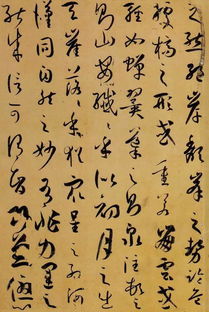 之態絕岸頹峯之勢臨危
據槁之形或重若崩雲或
輕如蟬翼導之則泉注頓之
則山安纖纖乎似初月之出
天崖落落乎猶眾星之列河
漢同自然之妙有非力運之
能成信可謂智巧兼優